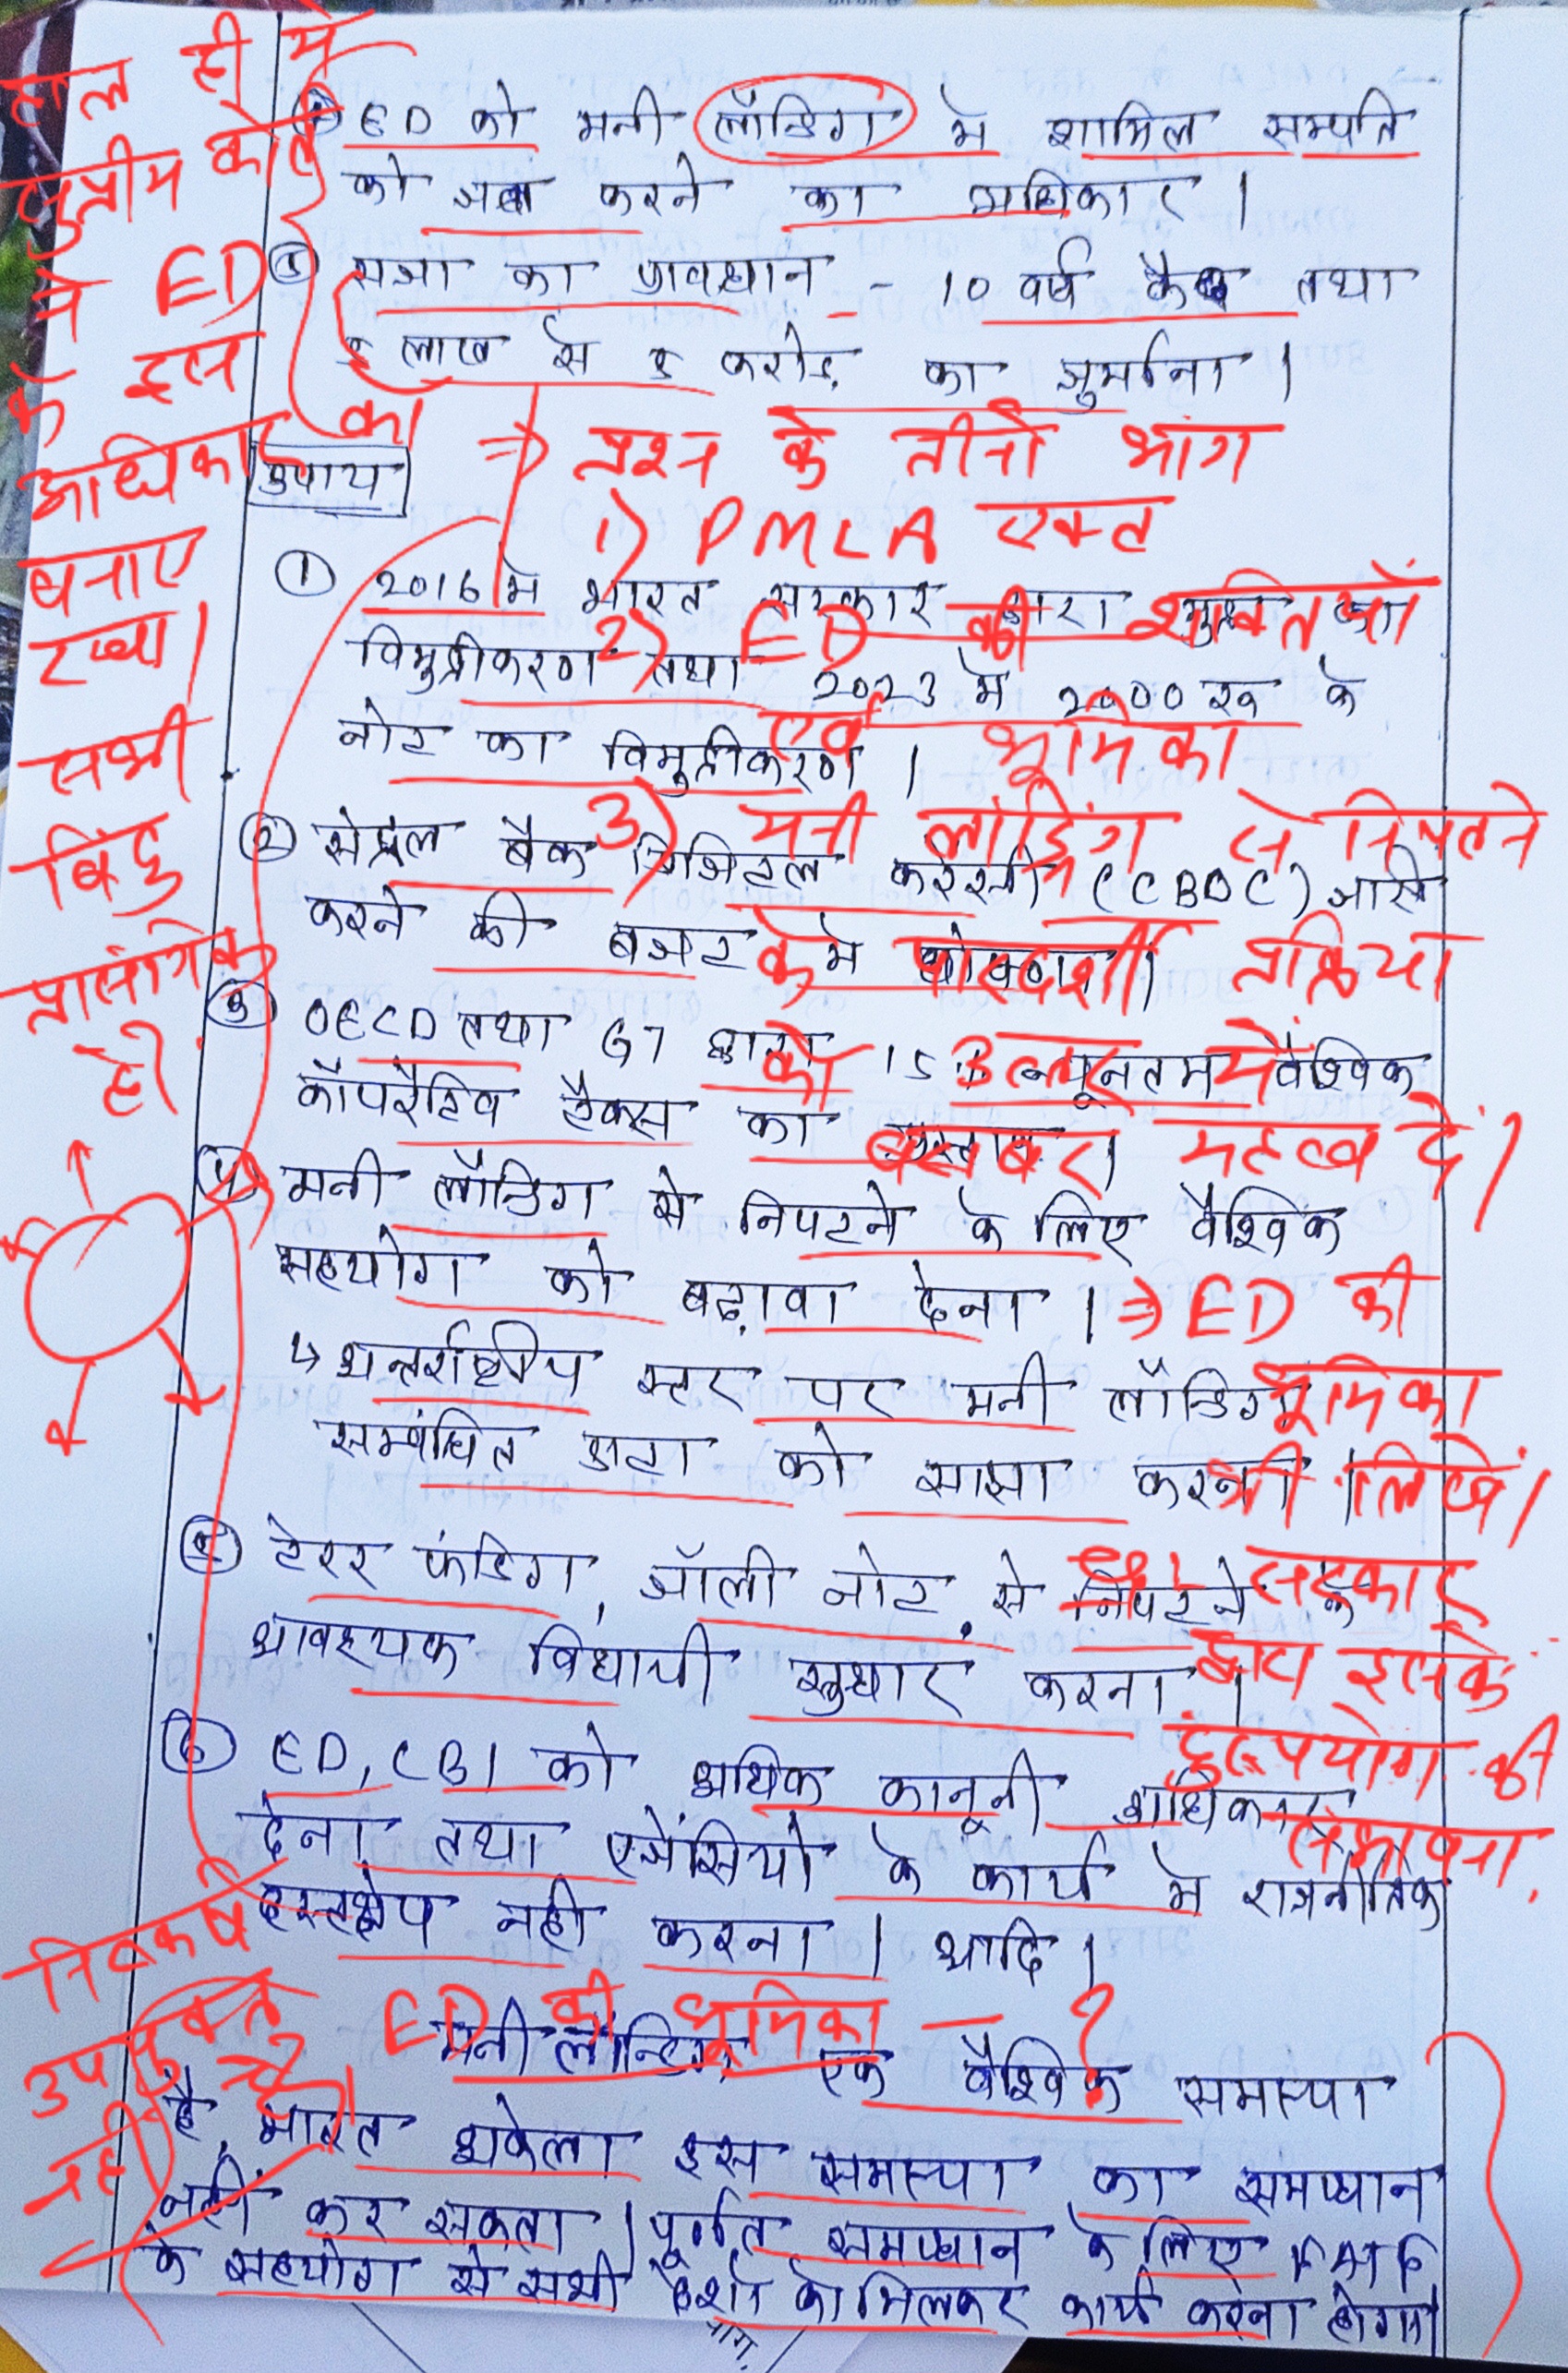 हाल ही में
सुप्रीम कोर्ट
ने ED
के इस
अधिकार को
बनाए
रखा।
सभी
बिंदु
प्रासंगिक
हैं।
ED को मनी लॉन्डिंग में शामिल सम्पति
को जब्त करने का अधिकार।
सजा का प्रावधान - 10 वर्ष कैद तथा
लाख से करोड़ का जुर्माना।
=> प्रश्न के तीनों भाग
1) PMLA एक्ट
2) ED की शक्तियाँ
एवं भूमिका
3) मनी लांड्रिंग से निपटने
के पारदर्शी प्रक्रिया
को उत्तर में
बराबर महत्व दें।
उपाय
① 2016 में भारत सरकार द्वारा मुद्रा का
विमुद्रीकरण तथा 2023 में 2000 रु के
नोट का विमुद्रीकरण।
② सेंट्रल बैंक डिजिटल करेंसी (CBDC) जारी
करने की बजट में घोषणा।
③ OECD तथा G7 द्वारा 15% न्यूनतम वैश्विक
कॉपरेटिव टैक्स का प्रस्ताव।
④ मनी लॉन्डिंग से निपटने के लिए वैश्विक
सहयोग को बढ़ावा देना।
↳ अन्तर्राष्ट्रीय स्तर पर मनी लॉन्डिंग
सम्बंधित डाटा को साझा करना।
=> ED की
भूमिका
भी लिखें।
सरकार
द्वारा इसके
दुरुपयोग की
संभावना.
⑤ टेरर फंडिंग, जॉली नोट से निपटने
आवश्यक विधायी सुधार करना।
⑥ ED, CBI को अधिक कानूनी अधिकार
देना तथा एजेंसियो के कार्य में राजनीतिक
हस्तक्षेप नही करना। आदि।
निष्कर्ष
उपयुक्त
नहीं है।
ED की भूमिका - ?
मनी लॉन्डिंग एक वैश्विक समस्या
है, भारत अकेला इस समस्या का समाधान
नहीं कर सकता। पूर्णत समाधान के लिए
के सहयोग से सभी देशों को मिलकर कार्य करना होगा।